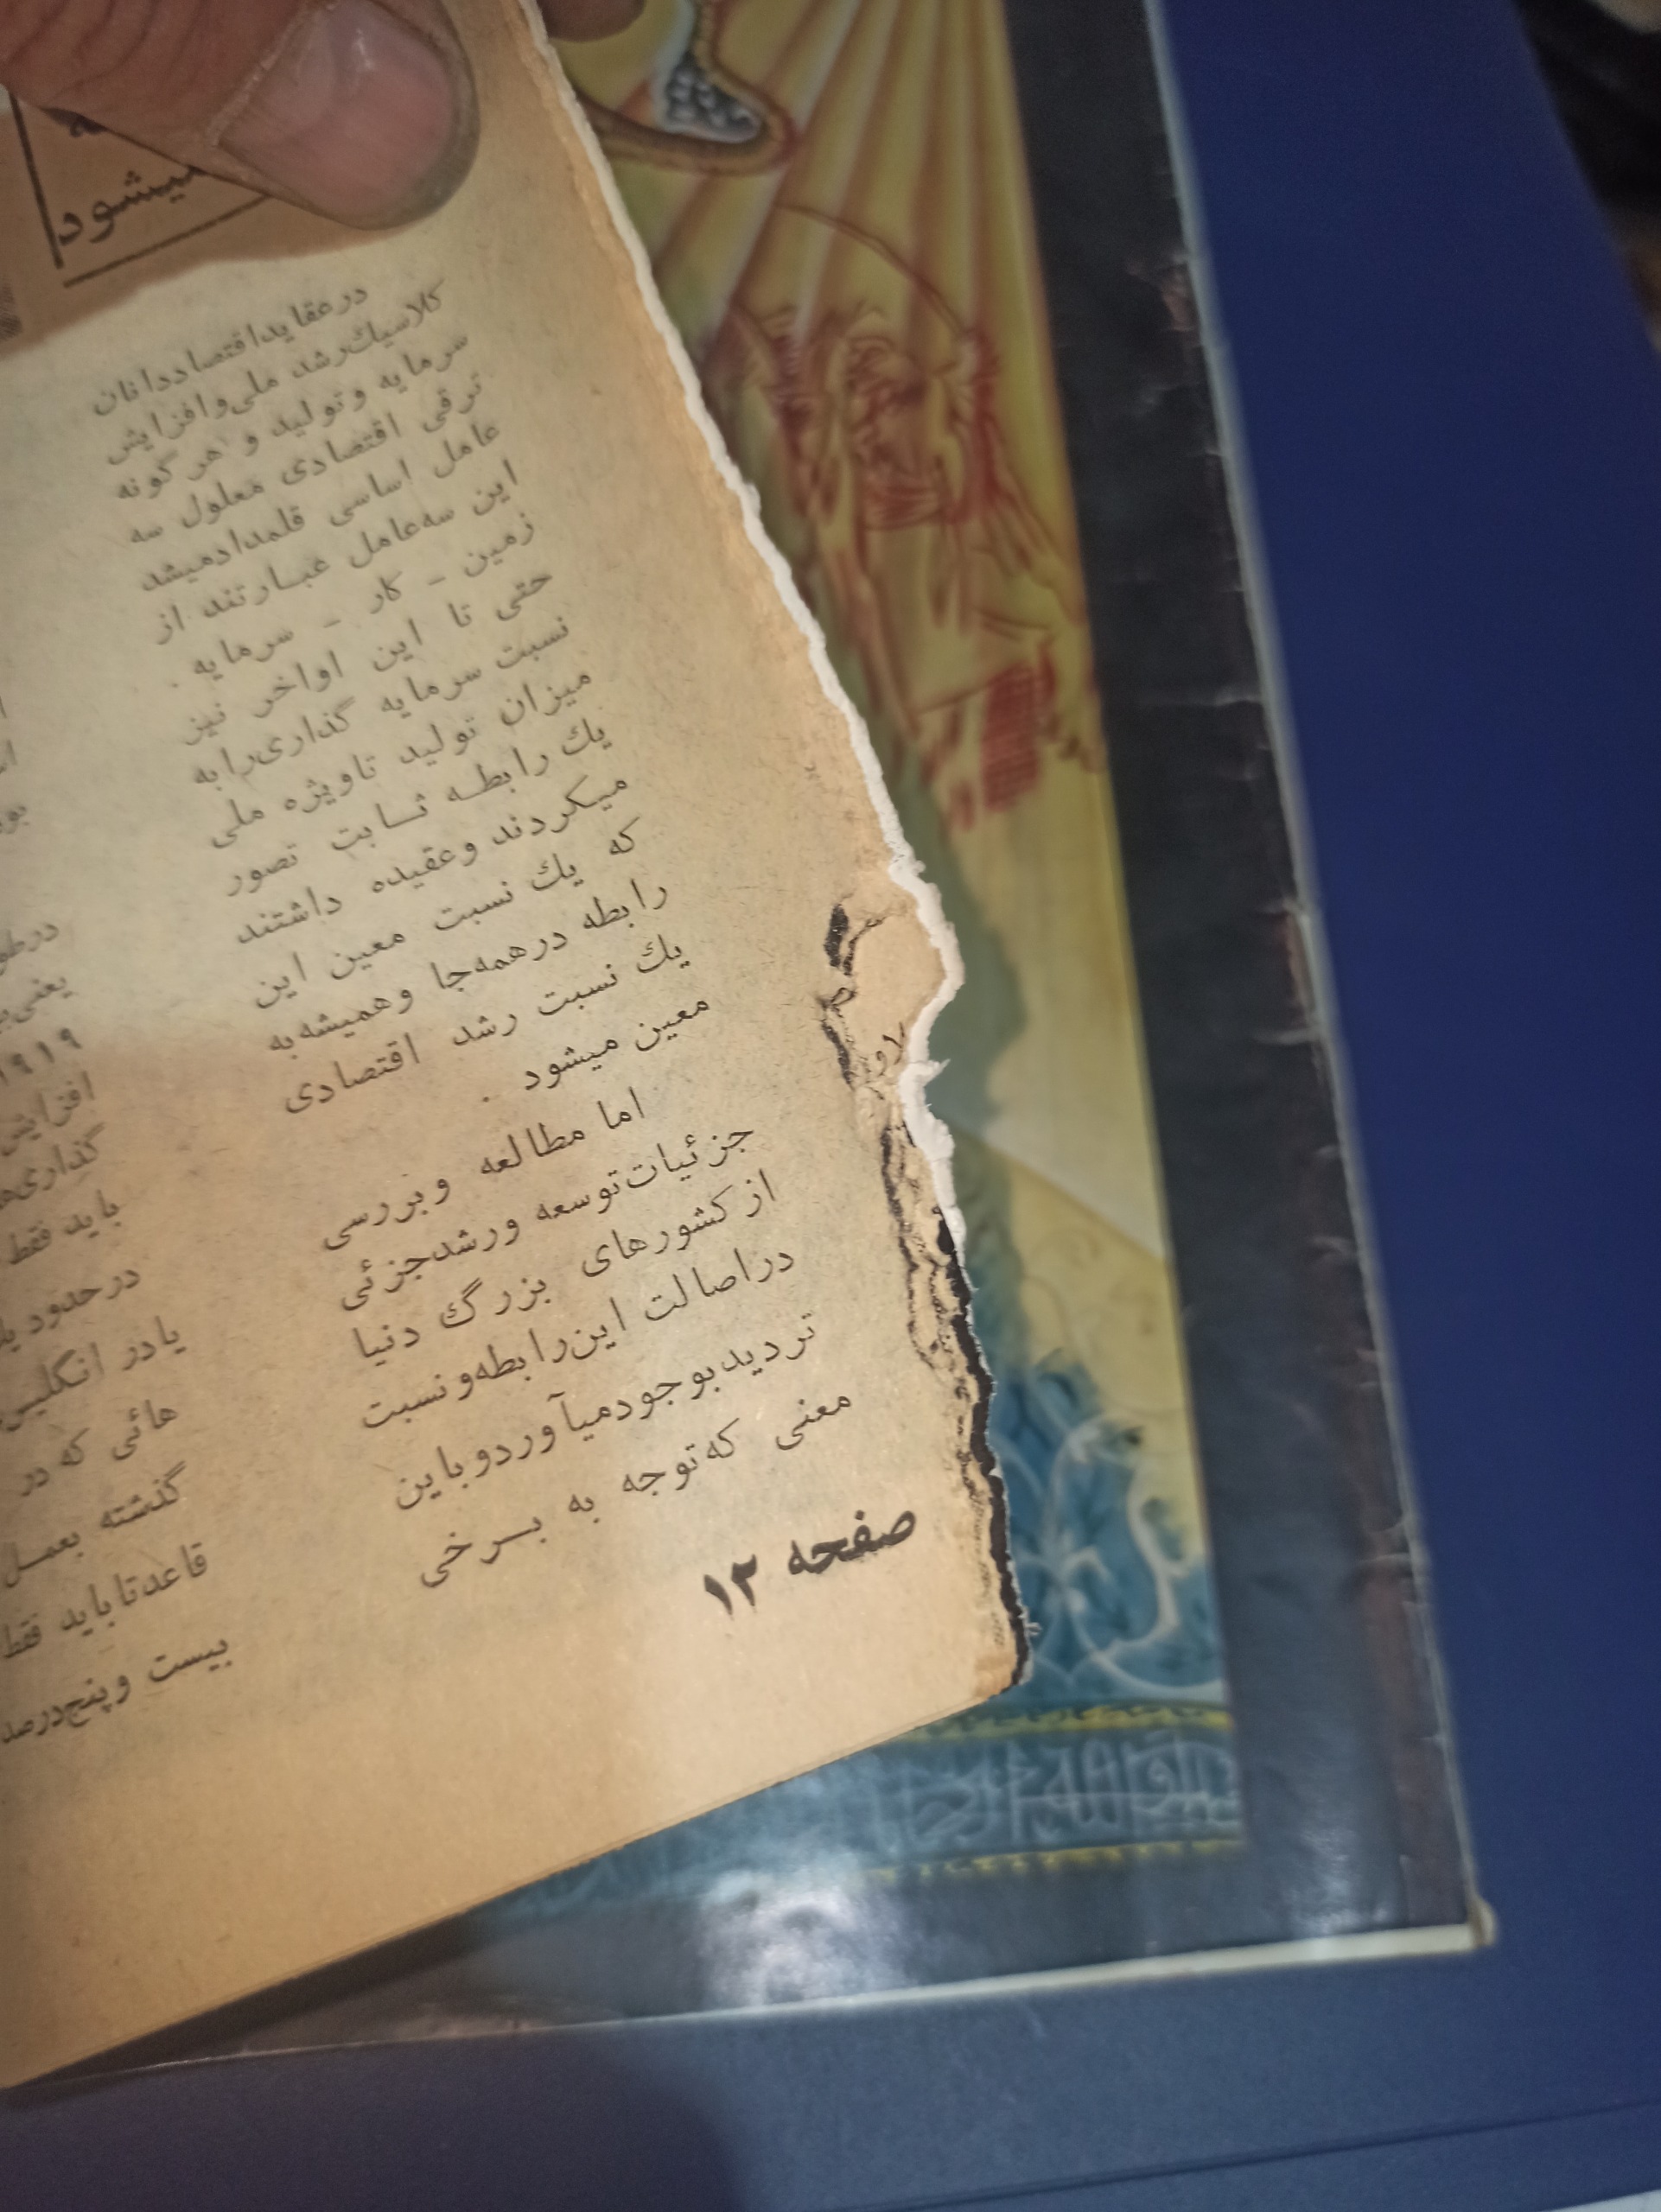 میشود
در عقاید اقتصاددانان
کلاسیک رشد ملی و افزایش
سرمایه و تولید و هر گونه
ترقی اقتصادی معلول سه
عامل اساسی قلمداد میشد
این سه عامل عبارتند از
زمین - کار - سرمایه .
حتی تا این اواخر نیز
نسبت سرمایه گذاری را به
میزان تولید تاویژه ملی
یك رابطه ثابت تصور
میکردند و عقیده داشتند
که یك نسبت معین این
رابطه در همه جا و همیشه به
یك نسبت رشد اقتصادی
معین میشود .
اما مطالعه و بررسی
جزئیات توسعه و رشد جزئی
از کشورهای بزرگ دنیا
در اصالت این رابطه و نسبت
تردید بوجود میآورد و باین
معنی که توجه به برخی
صفحه ۱۲
۱۹۱۹
افزایش
باید فقط
در حدود
یا در انگلیس
هائی که در
گذشته بعمل
قاعدتا باید فقط
بیست و پنج درصد